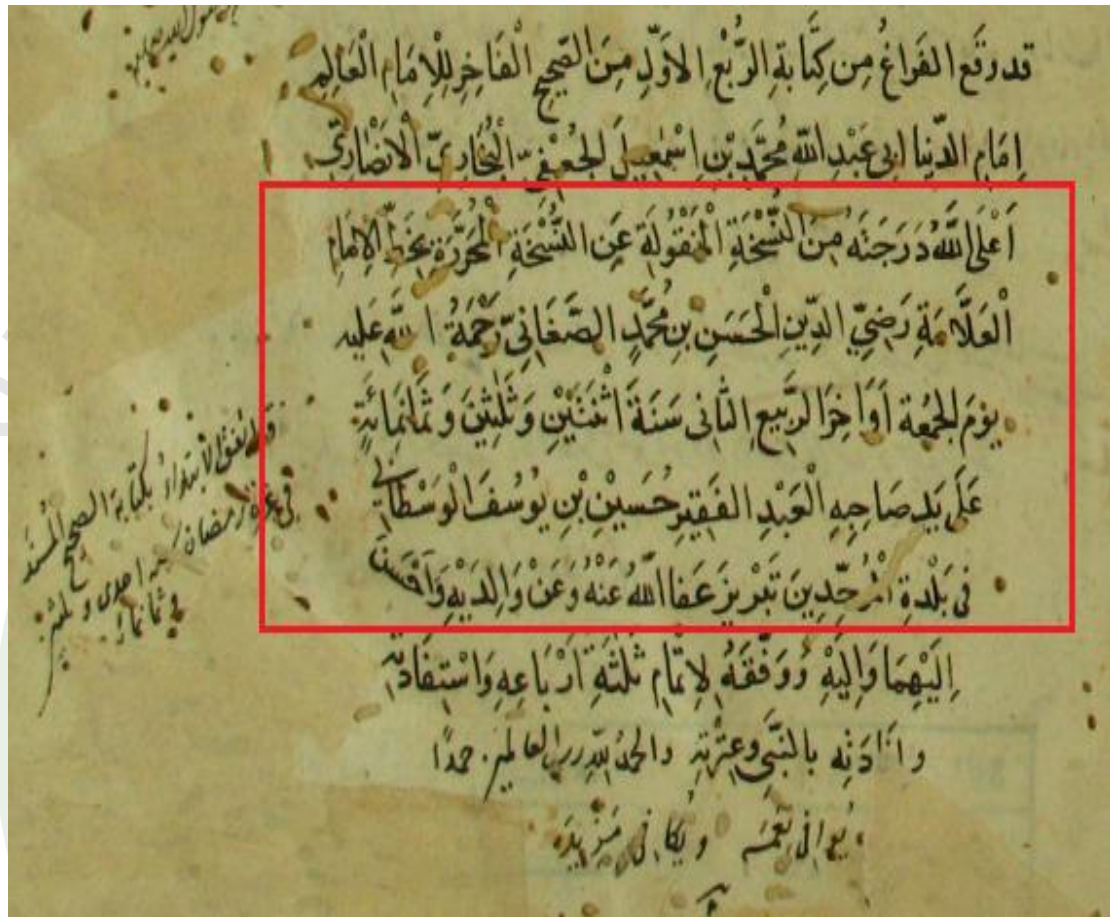 قد وقع الفَراغُ مِن كِتَابَةِ الرُّبْعِ الاَوَّلِ مِنَ الصَّحِيحِ الْفَاخِرِ لِلْاِمَامِ الْعَالِمِ
اِمَامِ الدُّنيا ابى عَبْدِ اللّٰهِ مُحَمَّدِ بْنِ اِسْمٰعِيلَ الجُعْفِىّ الْبُخَارِىّ الْاَنصَارِىّ
اَعْلَى اللّٰهُ دَرَجَتَهُ مِنَ النُّسْخَةِ الْمَنْقُولَةِ عَنِ النُّسْخَةِ الْمُحَرَّرَةِ بِخَطِّ الاِمَامِ
الْعَلَّامَةِ رَضِىِّ الدِّينِ الْحَسَنِ بنِ مُحَمَّدٍ الصَّغَانِىّ رَحْمَةُ اللّٰهِ عليه
يَوْمَ الجُمُعَة اَوَاخِرَ الرَّبِيعِ الثَّانى سَنَةَ اثْنَتَيْنِ وَثَلٰثِينَ وَثَمَانمَائَةٍ
عَلَى يَدِ صَاحِبِهِ الْعَبْدِ الفَقِيرِ حُسَيْنِ بْنِ يُوسُفَ الْوَسْطَانِى
فى بَلْدَةِ الْمُوَحِّدِينَ تَبْرِيزَ عَفَا اللّٰهُ عَنْهُ وَعَنْ وَالِدَيْهِ وَاَحْسَنَ
اِلَيْهِمَا وَاِلَيْهِ وَوَفَّقَهُ لِاِتْمَامِ ثَلٰثَةِ اَرْبَاعِهِ وَاسْتِفَادَتِهِ
وافَادَتِه بالنَّبِىِّ وعِتْرَتِهِ والحمدُ للّٰهِ رب العالمين حمدًا
يُوافى نِعَمَهُ ويُكافى مَزِيدَهُ
وقد اتفق الابتداءُ بكتابة الصحيح المُسنَد
فى غرة رمضان سنه احدى وثلثين
وثمانمائه